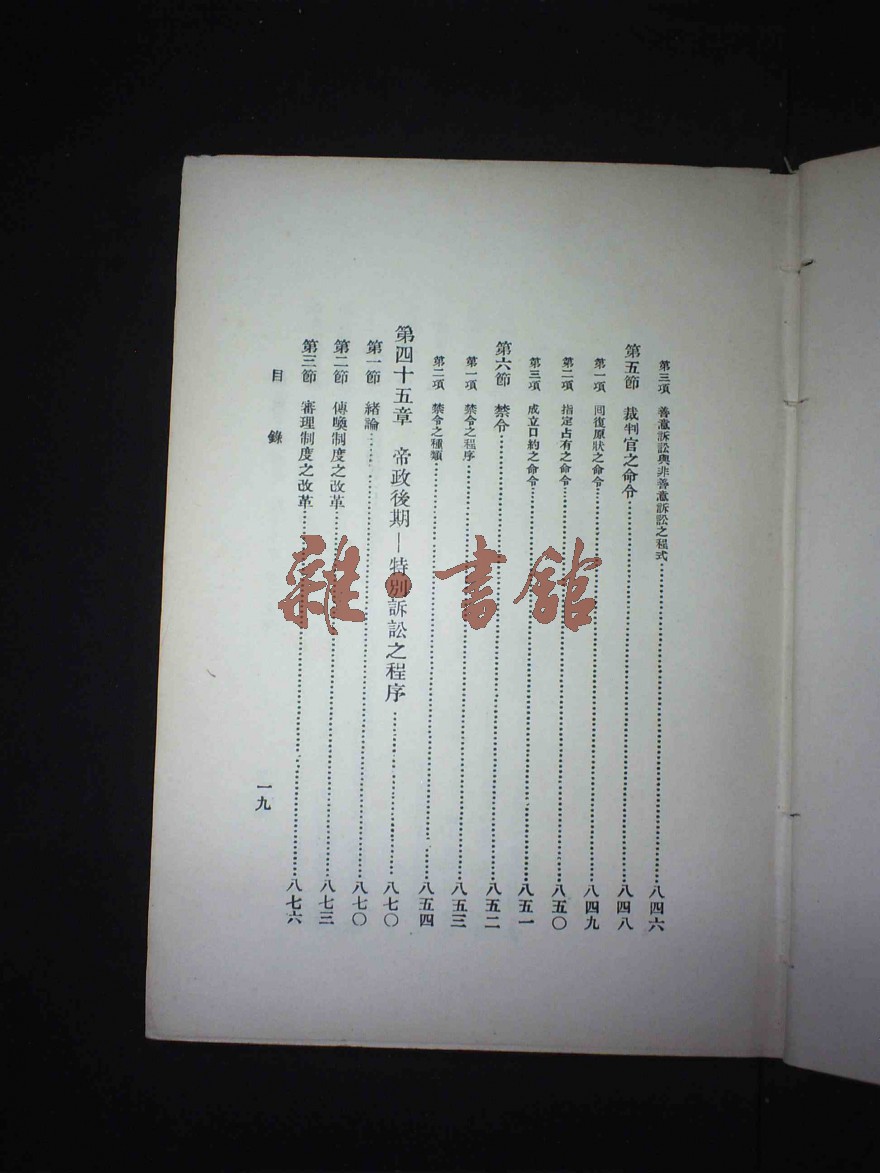 第三項　善意訴訟與非善意訴訟之程式……八四六
第五節　裁判官之命令……八四八
第一項　回復原狀之命令……八四九
第二項　指定占有之命令……八五〇
第三項　成立口約之命令……八五一
第六節　禁令……八五二
第一項　禁令之程序……八五三
第二項　禁令之種類……八五四
第四十五章　帝政後期—特別訴訟之程序……八七〇
第一節　緒論……八七〇
第二節　傳喚制度之改革……八七三
第三節　審理制度之改革……八七六
目錄
一九
雜書館